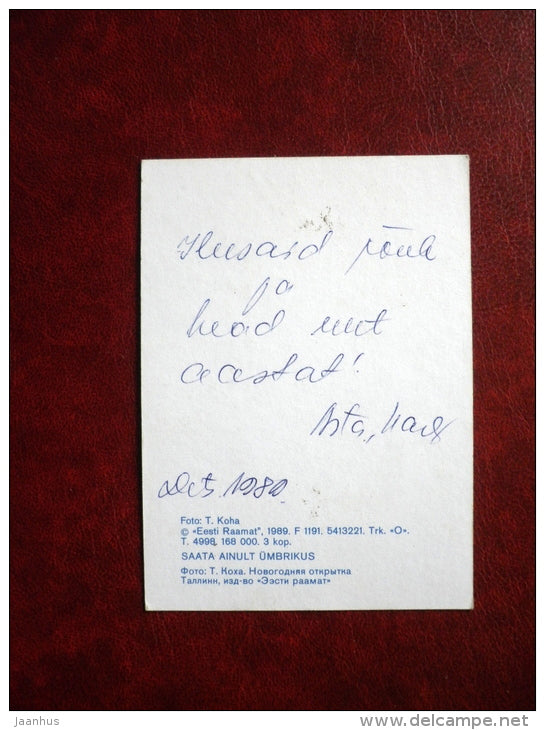 Ilusaid jõule
ja
head uut
aastat!
Asta,
Dets. 1989.
Foto: T. Koha
© «Eesti Raamat", 1989. F 1191. 5413221. Trk. «O».
T. 4998. 168 000. 3 kop.
SAATA AINULT ÜMBRIKUS
Фото: Т. Коха. Новогодняя открытка
Таллинн, изд-во «Ээсти раамат»
jaanhus
http://www.delcampe.net